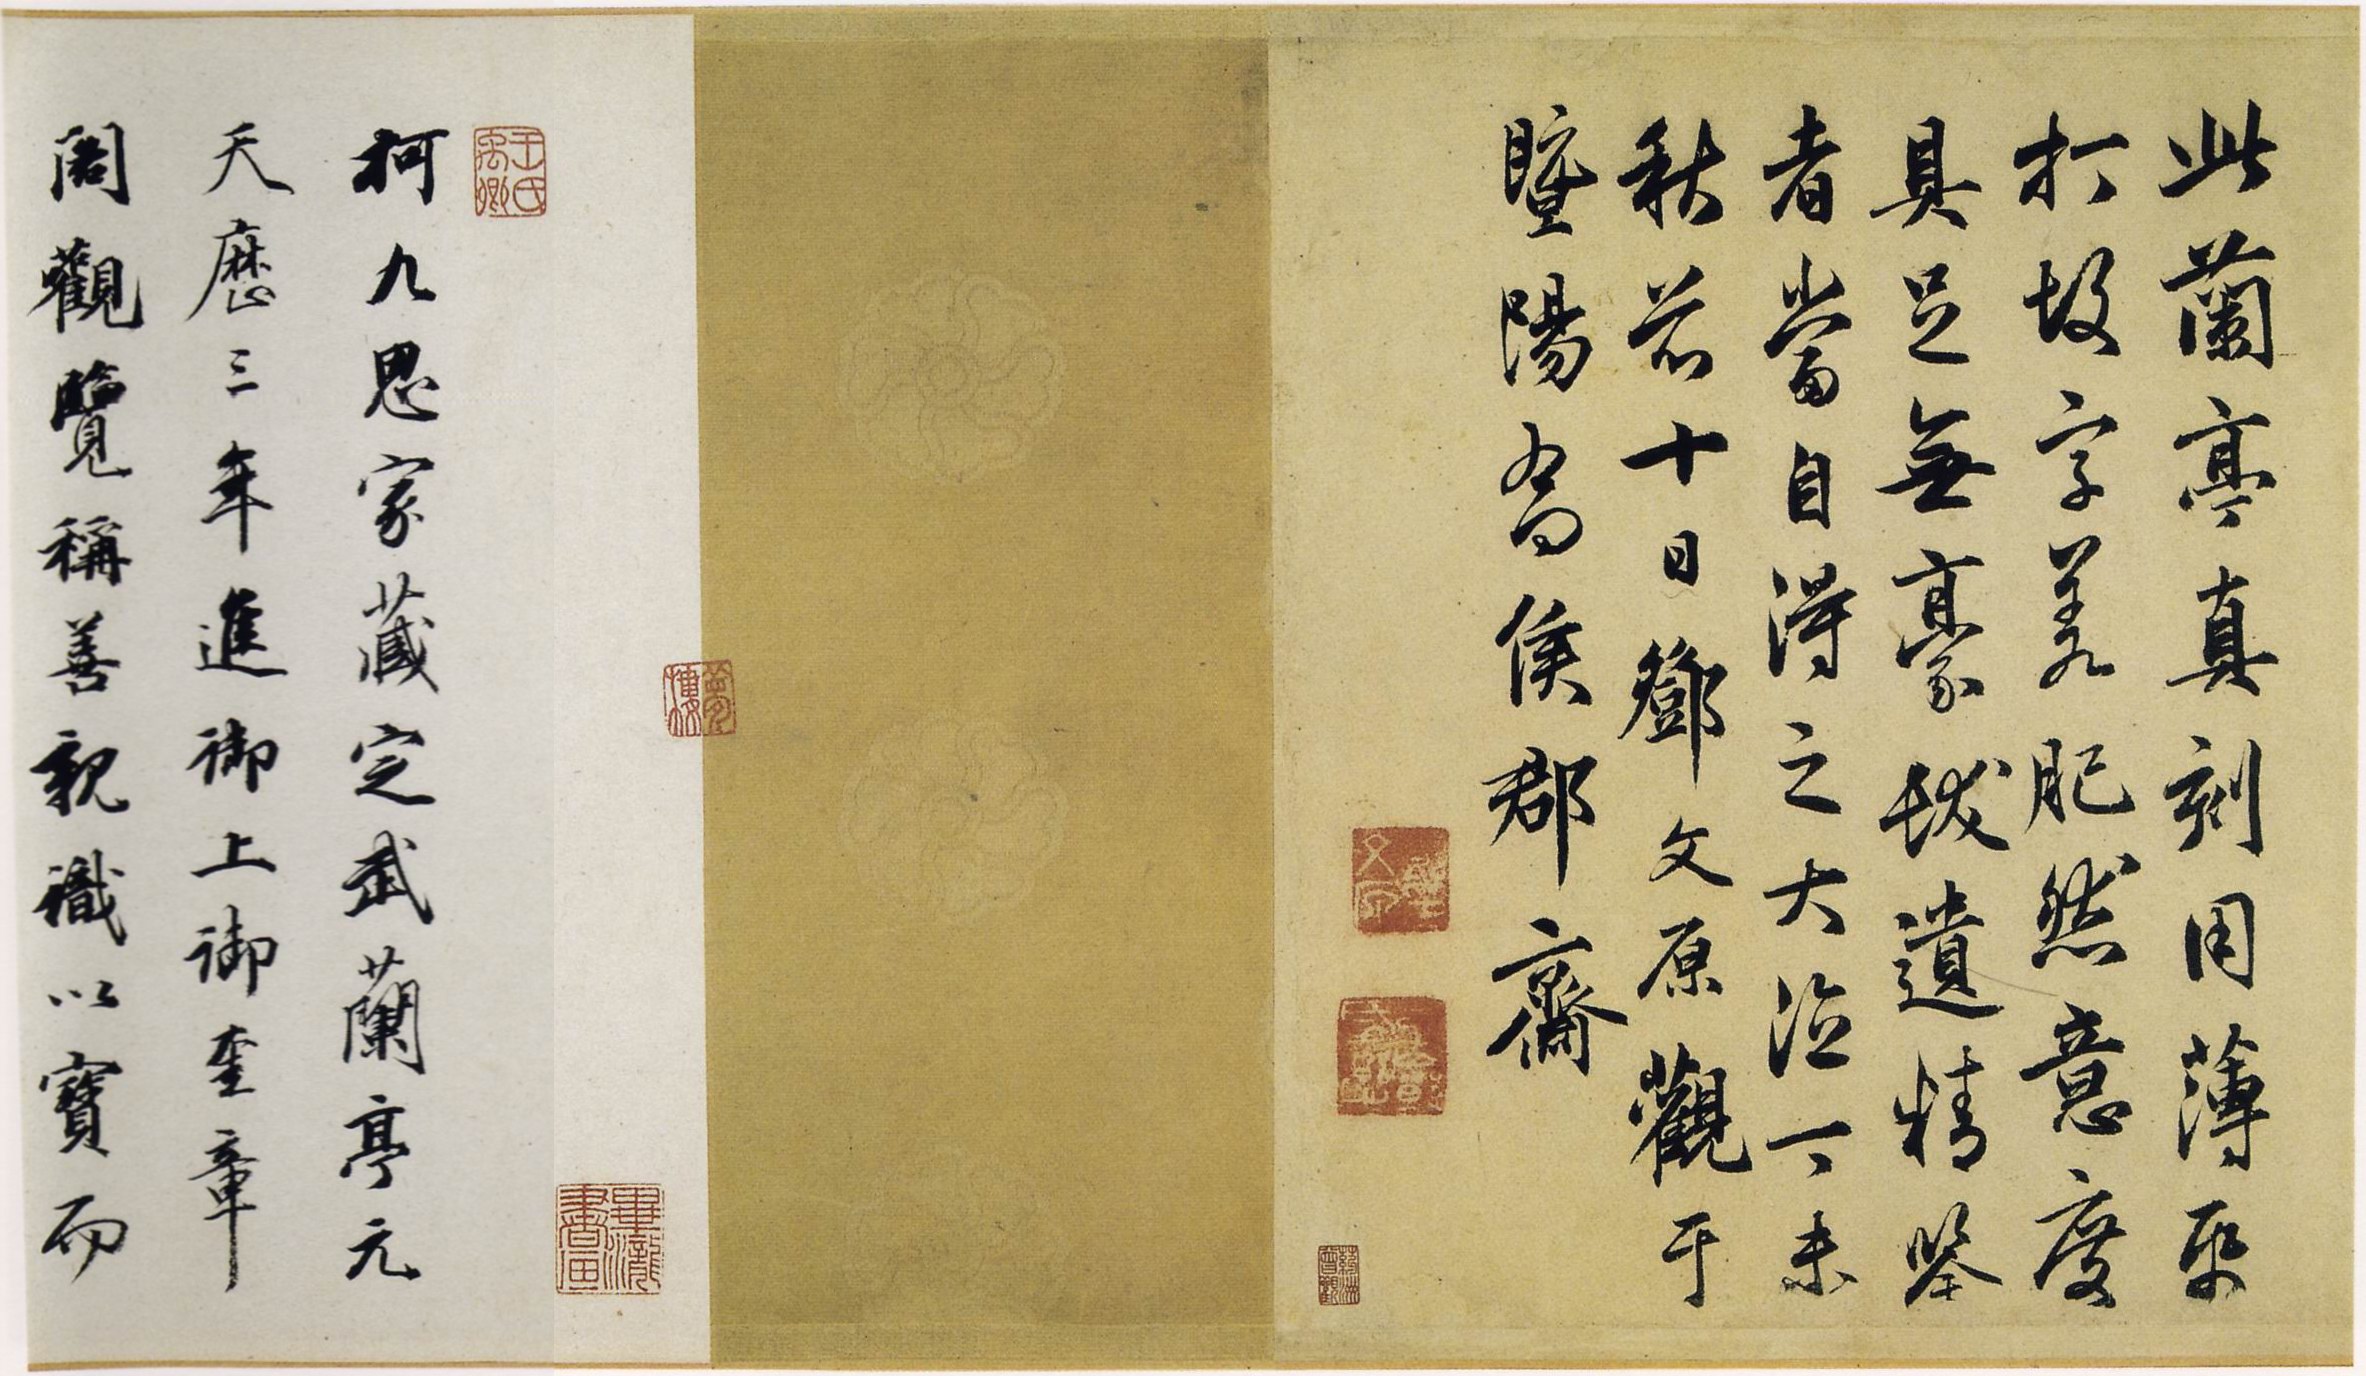 此蘭亭真刻用薄帋
打故字差肥然意度
具足無豪髮遺精鑒
者當自得之大德丁未
秋前十日鄧文原觀于
暨陽喬侯郡齋
夢樓
王氏禹卿
柯九思家藏定武蘭亭元
天曆三年進御上御奎章
閣觀覽稱善親識以寶而